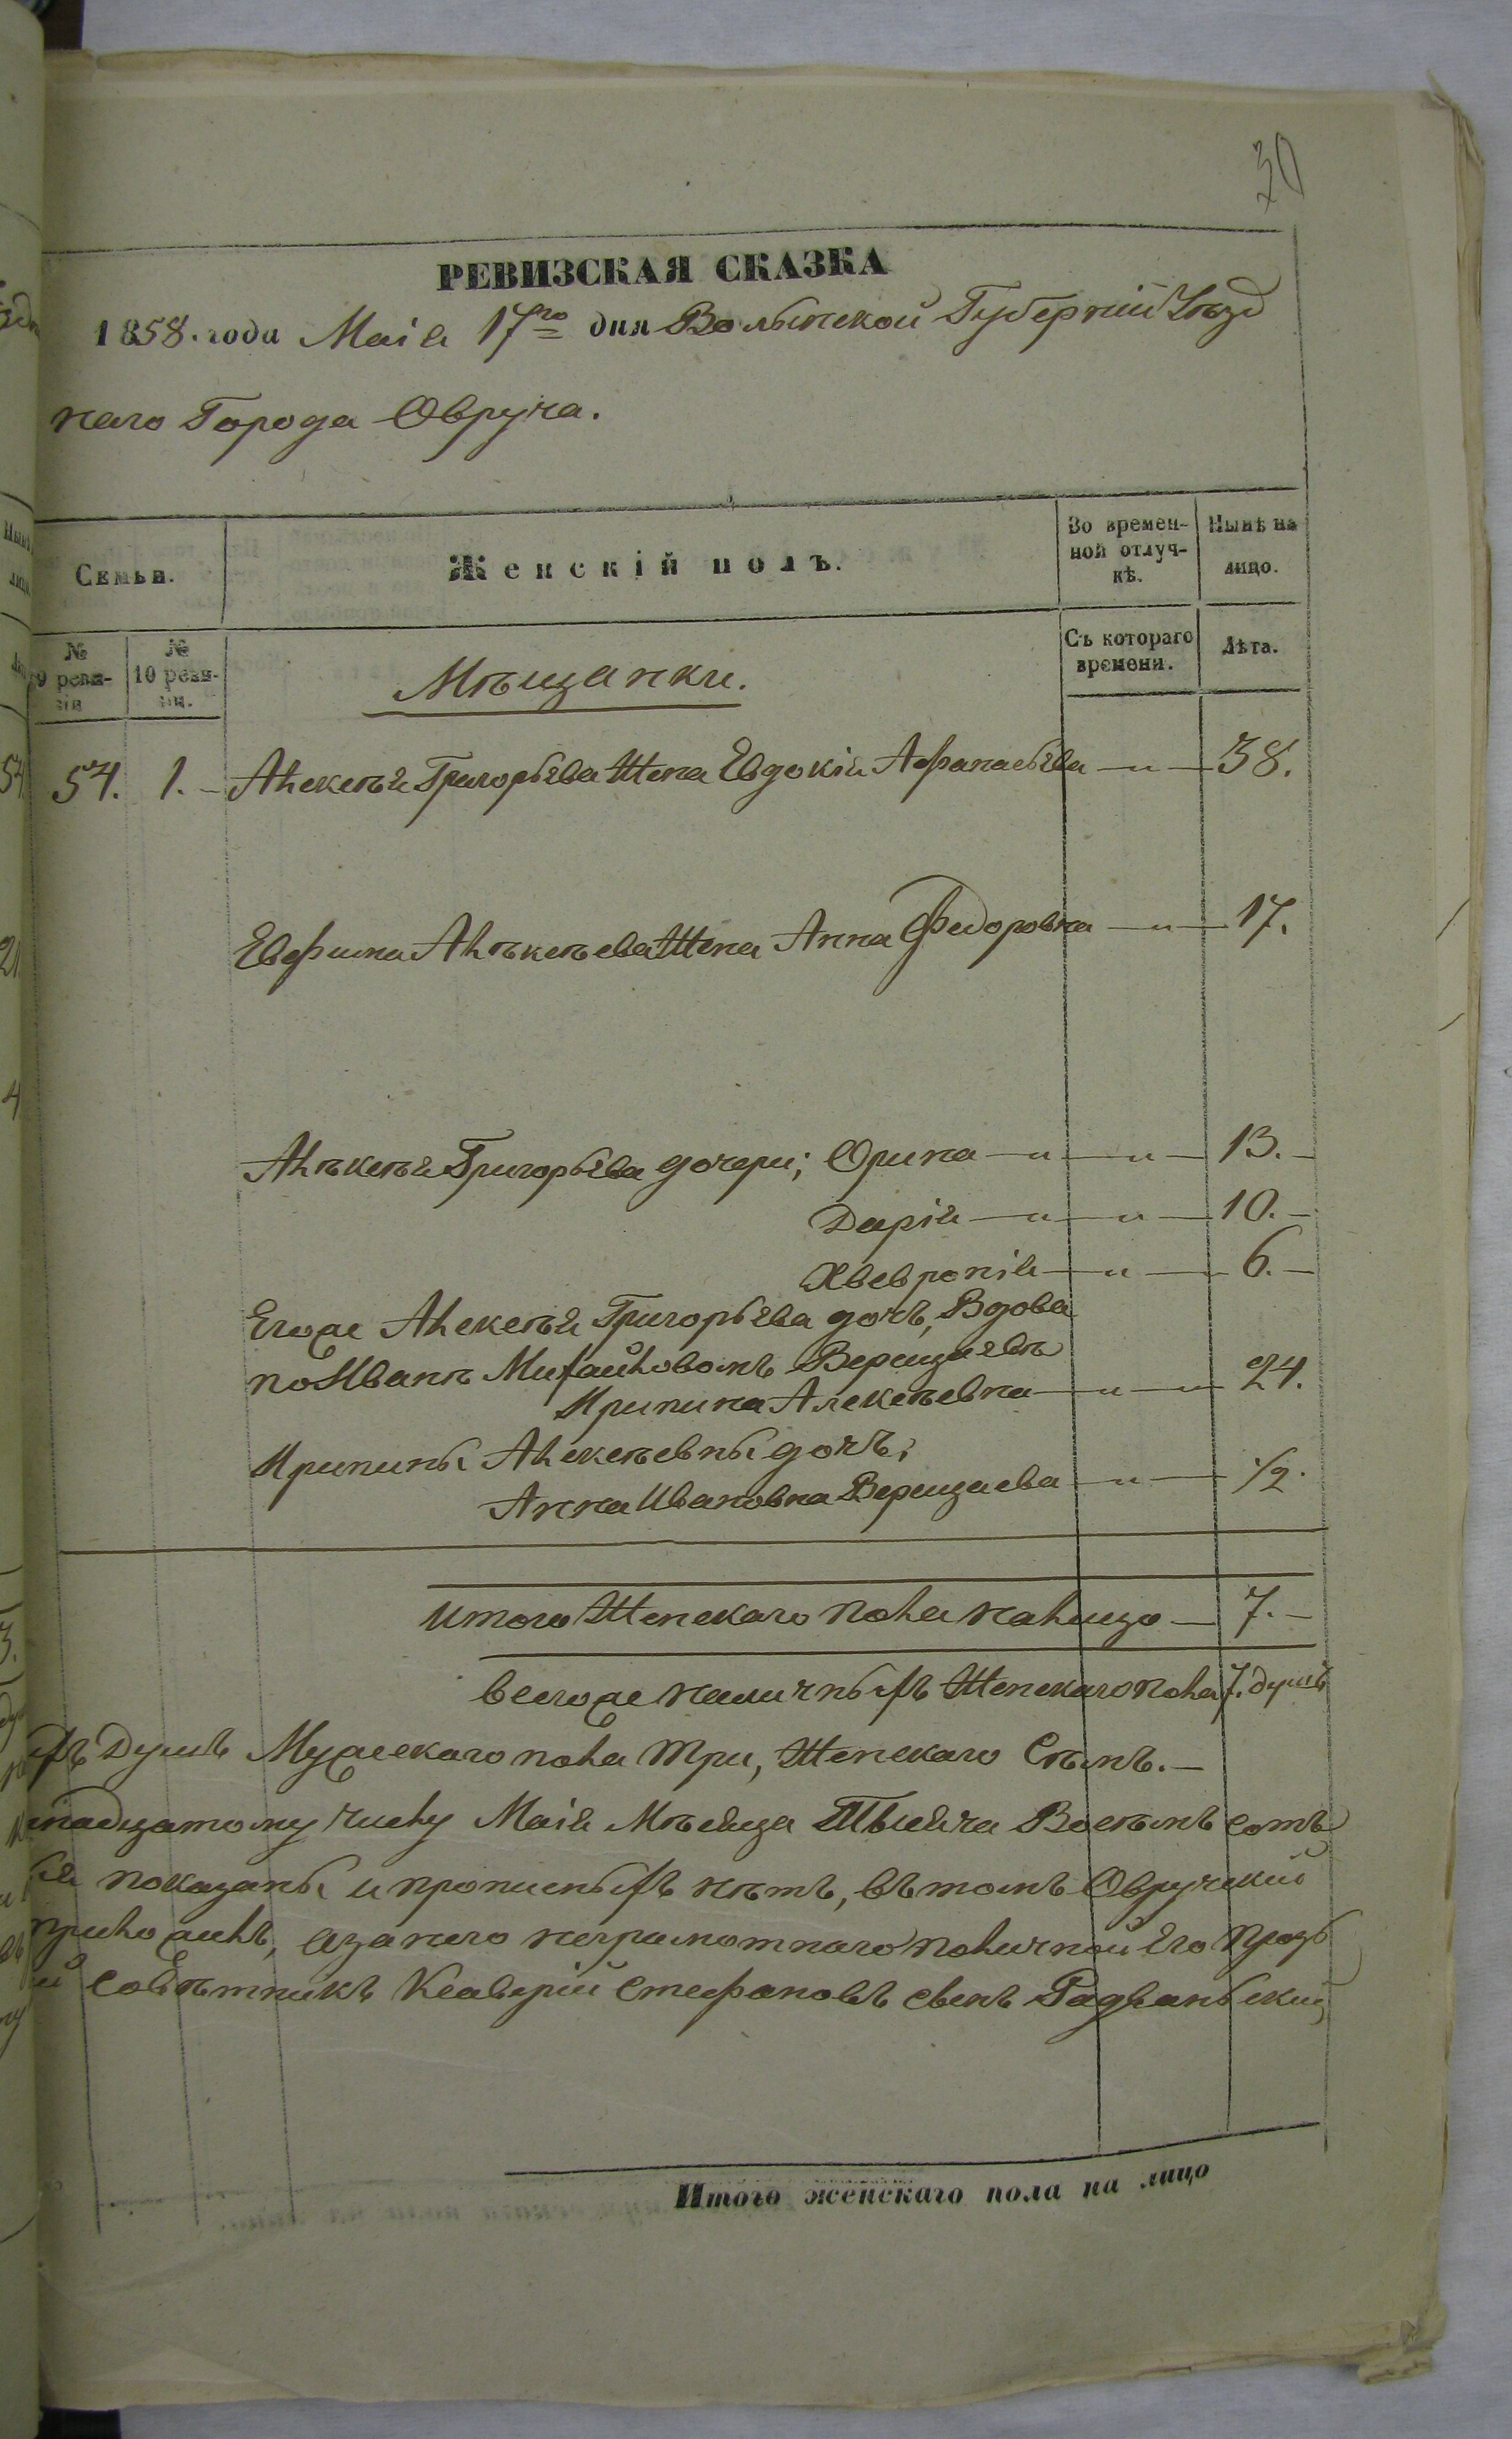 30
РЕВИЗСКАЯ СКАЗКА
1858. года Маія 17го дня Волынской Губерніи Уѣзд
наго Города Овруча.
Семьи. Женскій полъ. Во времен- Нынѣ на
ной отлуч- лицо.
кѣ.
№ № Съ котораго Лѣта.
9 реви- 10 реви- времени.
зіи зіи.
Мѣщанки.
54. 1. Алексѣя Григорьева Жена Евдокія Афанасьева — 38.
Евфима Алѣксѣева Жена Анна Федоровна — 17.
Алѣксѣя Григорьева дочери; Орина — 13.
Дарія — 10.
Хвевронія — 6.
Егоже Алексѣя Григорьева дочь, Вдова
по Иванѣ Михайловомъ Верещаевѣ
Иринина Алексѣевна — 24.
Иринины Алексѣевны дочь;
Анна Ивановна Верещаева — 1/2.
Итого Женскаго пола налицо — 7.
Всегоже наличныхъ Женскаго пола 7. душъ
хъ Душъ Мужескаго пола три, Женскаго Сѣмь.
надцатому числу Маія Мѣсяца Тысяча Восѣмъ сотъ
показаны и прописныхъ нѣтъ, въ томъ Овручскій
приложилъ, азанего неграмотнаго поличной Его прозь
й совѣтникъ Ксаверій Стефановъ сынъ Радванскій
Итого женскаго пола на лицо